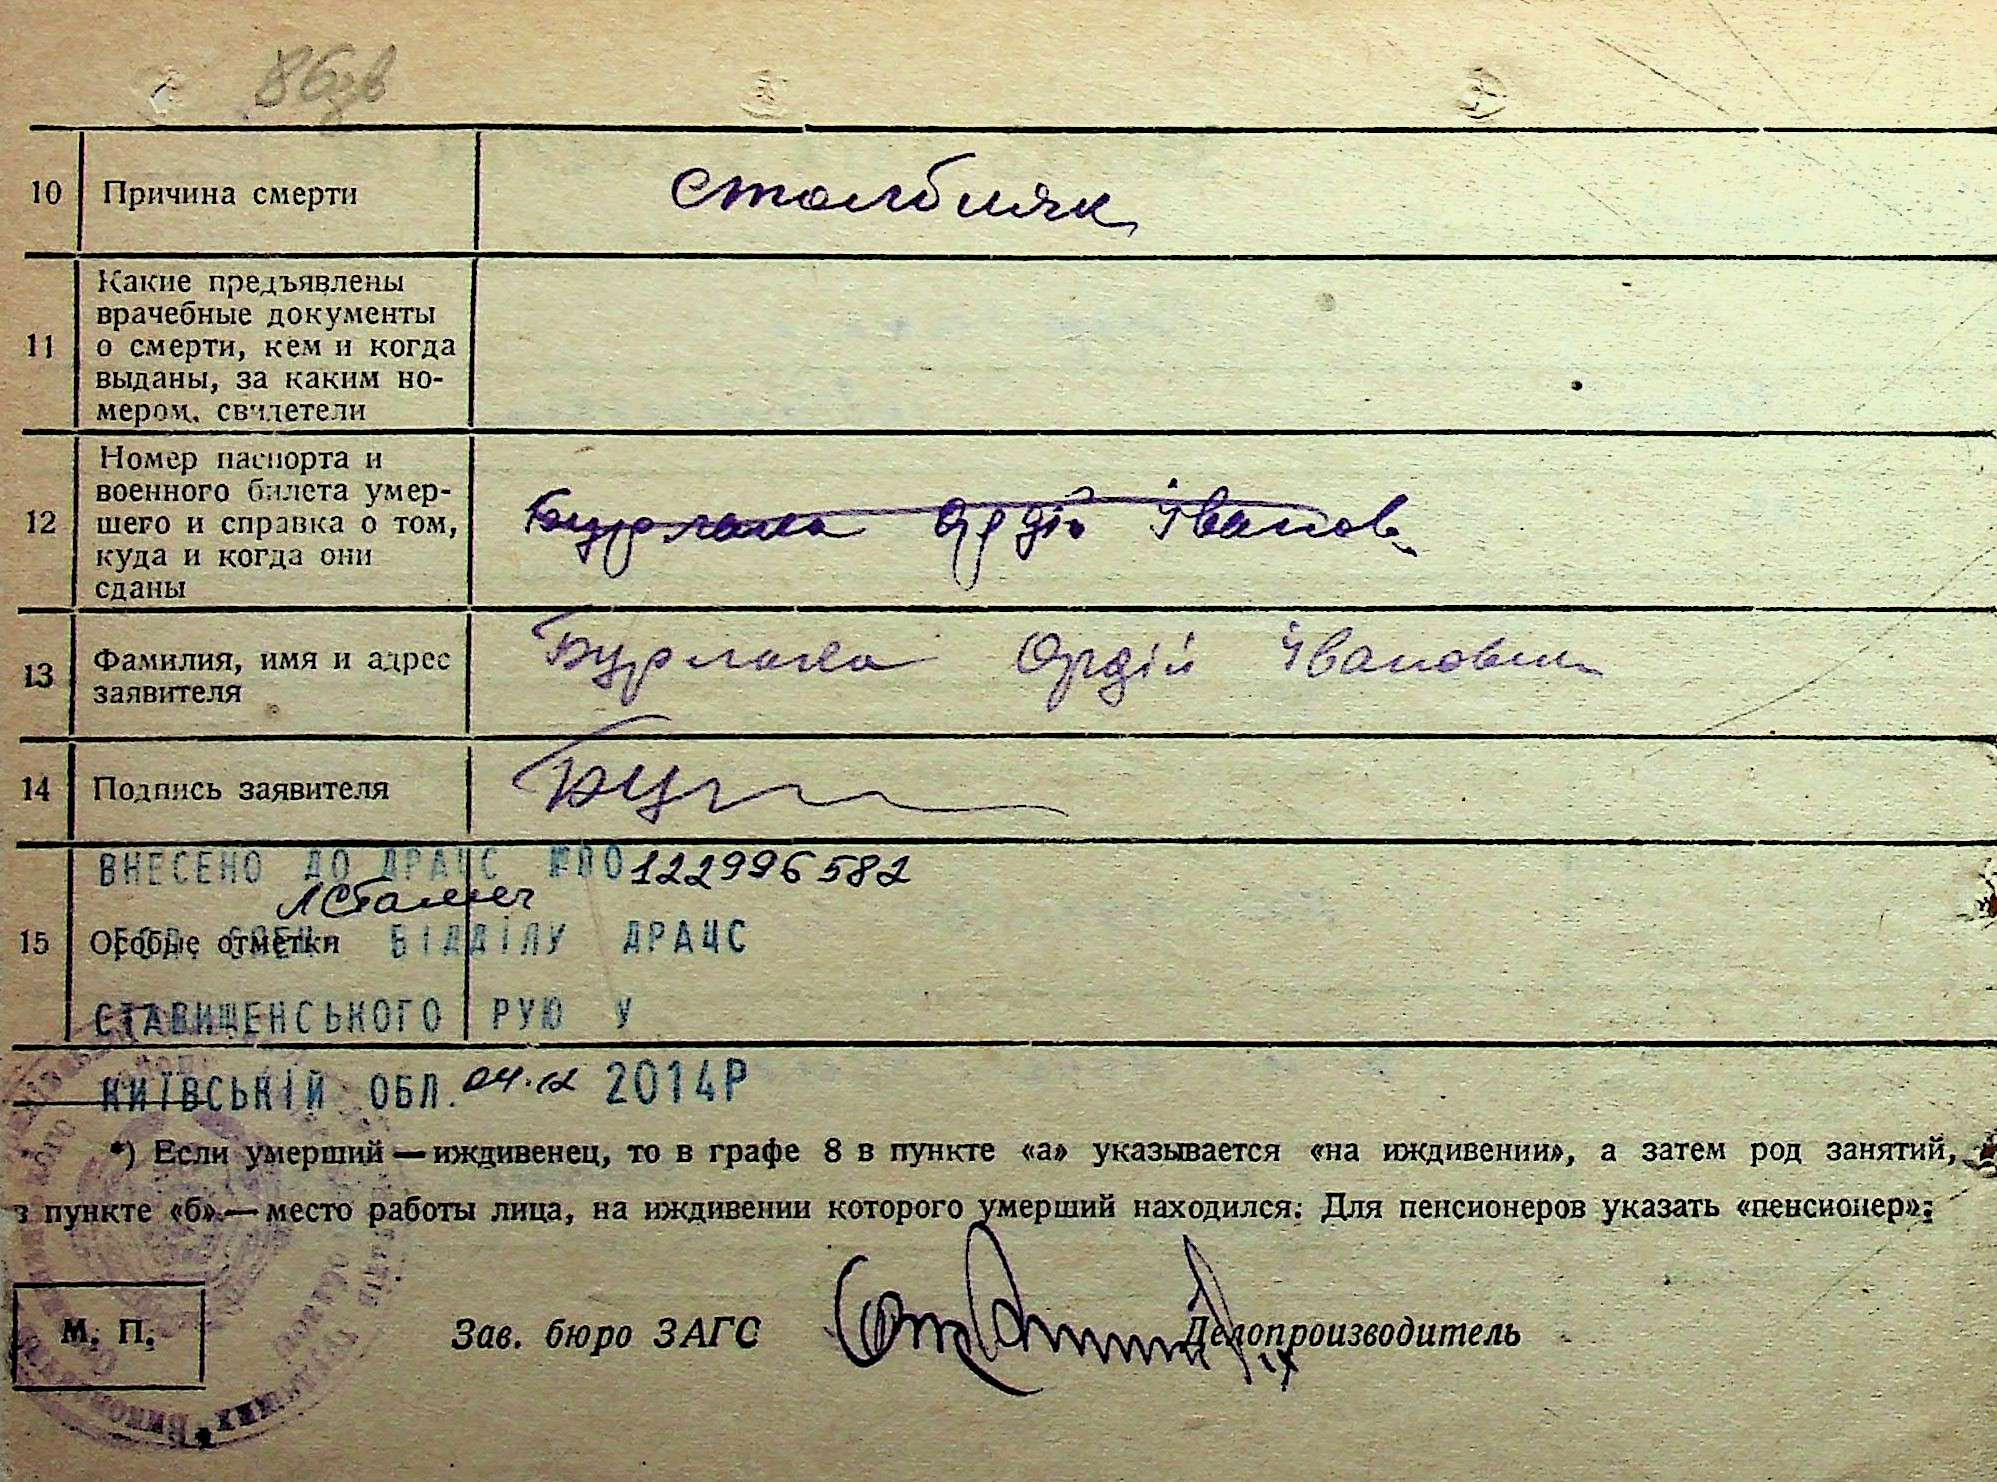 86зв
10 Причина смерти столбняк
11 Какие предъявлены
врачебные документы
о смерти, кем и когда
выданы, за каким но-
мером, свидетели
12 Номер паспорта и
военного билета умер-
шего и справка о том,
куда и когда они
сданы
Бурлака Ордій Іванов
13 Фамилия, имя и адрес
заявителя
Бурлака Ордій Іванович
14 Подпись заявителя Бур
ВНЕСЕНО ДО ДРАЦС №ПО 122996582
15 Особые отметки ВІДДІЛУ ДРАЦС
СТАВИЩЕНСЬКОГО РУЮ У
КИЇВСЬКІЙ ОБЛ. 04.12 2014Р
*) Если умерший — иждивенец, то в графе 8 в пункте «а» указывается «на иждивении», а затем род занятий,
в пункте «б» — место работы лица, на иждивении которого умерший находился. Для пенсионеров указать «пенсионер»;
М. П. Зав. бюро ЗАГС Делопроизводитель